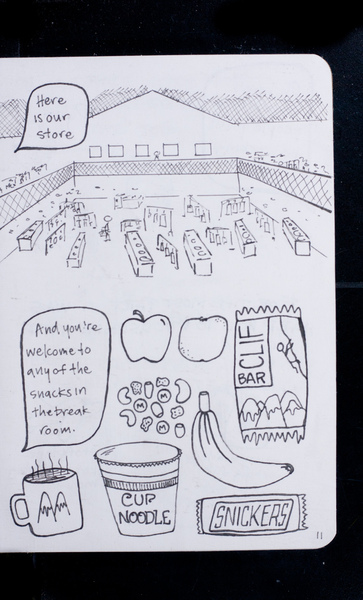 Here
is our
store
And you're
welcome to
any of the
snacks in
the break
room.
CLIF
BAR
M
M
M
M
CUP
NOODLE
SNICKERS
11